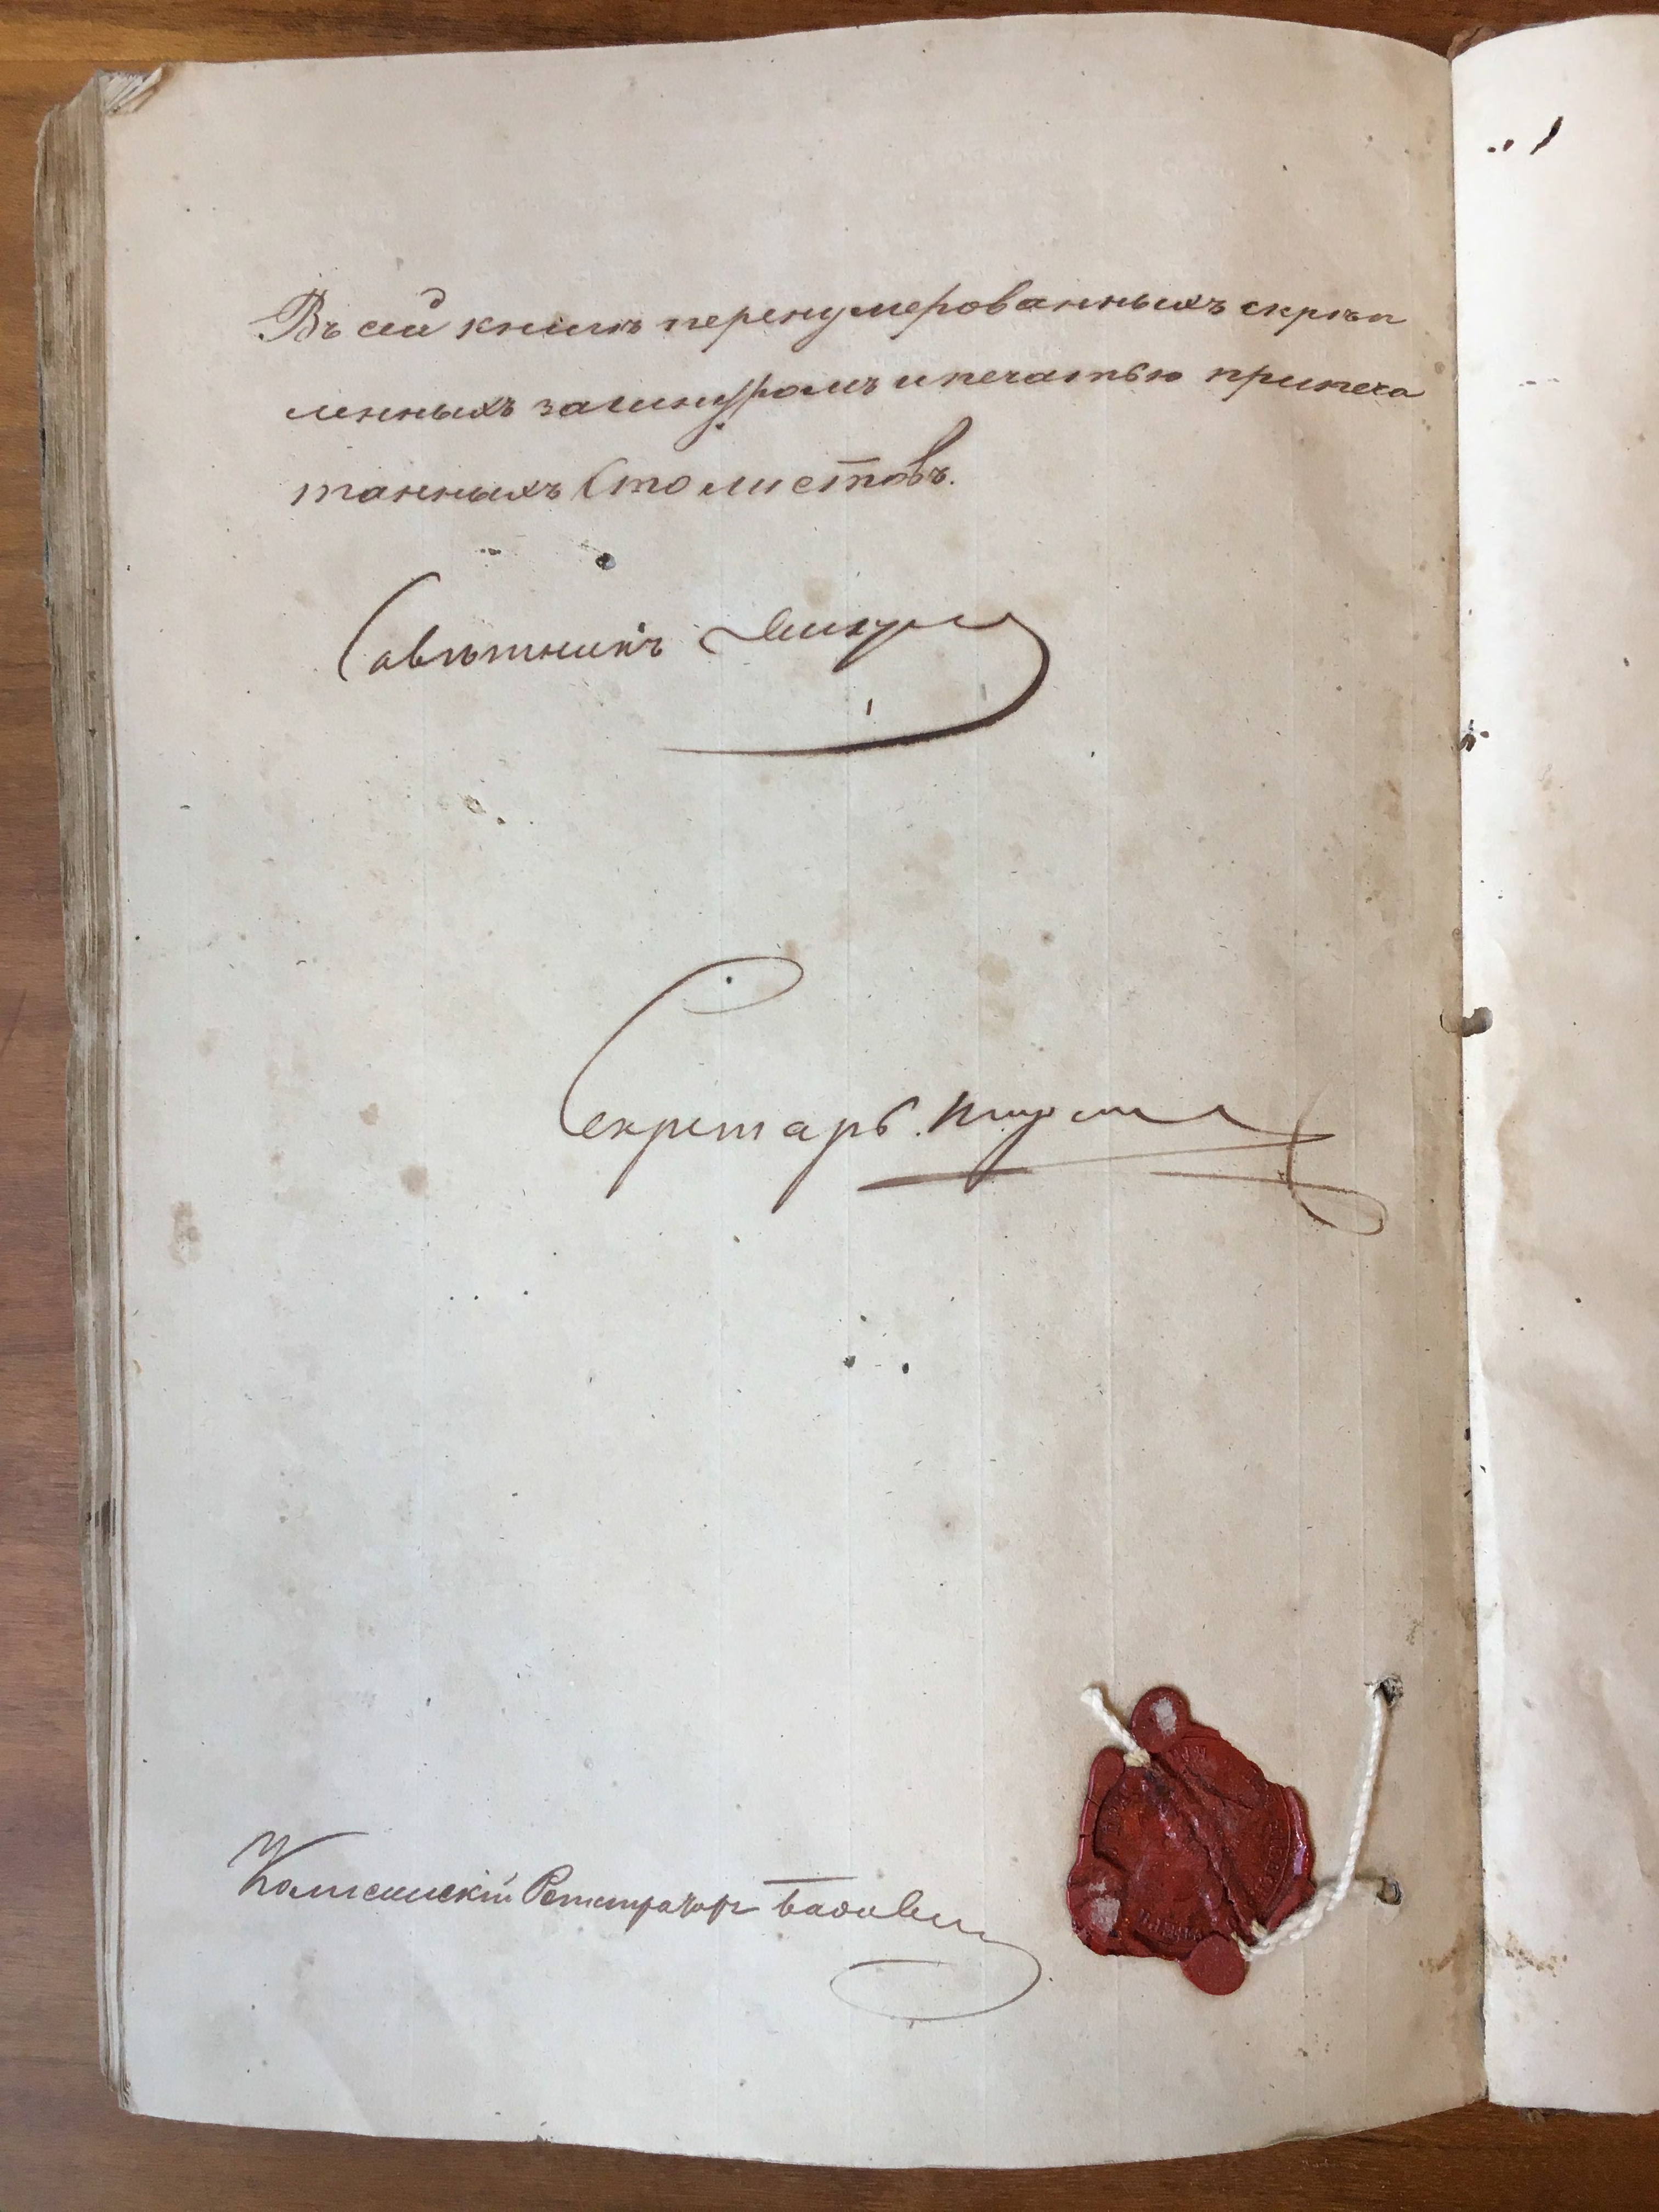 Въ сей книгѣ перенумерованныхъ скрѣп
ленныхъ зашнуромъ и печатью припеча
танныхъ Сто листовъ.
Совѣтникъ
Секретарь
Коллежскій Регистраторъ